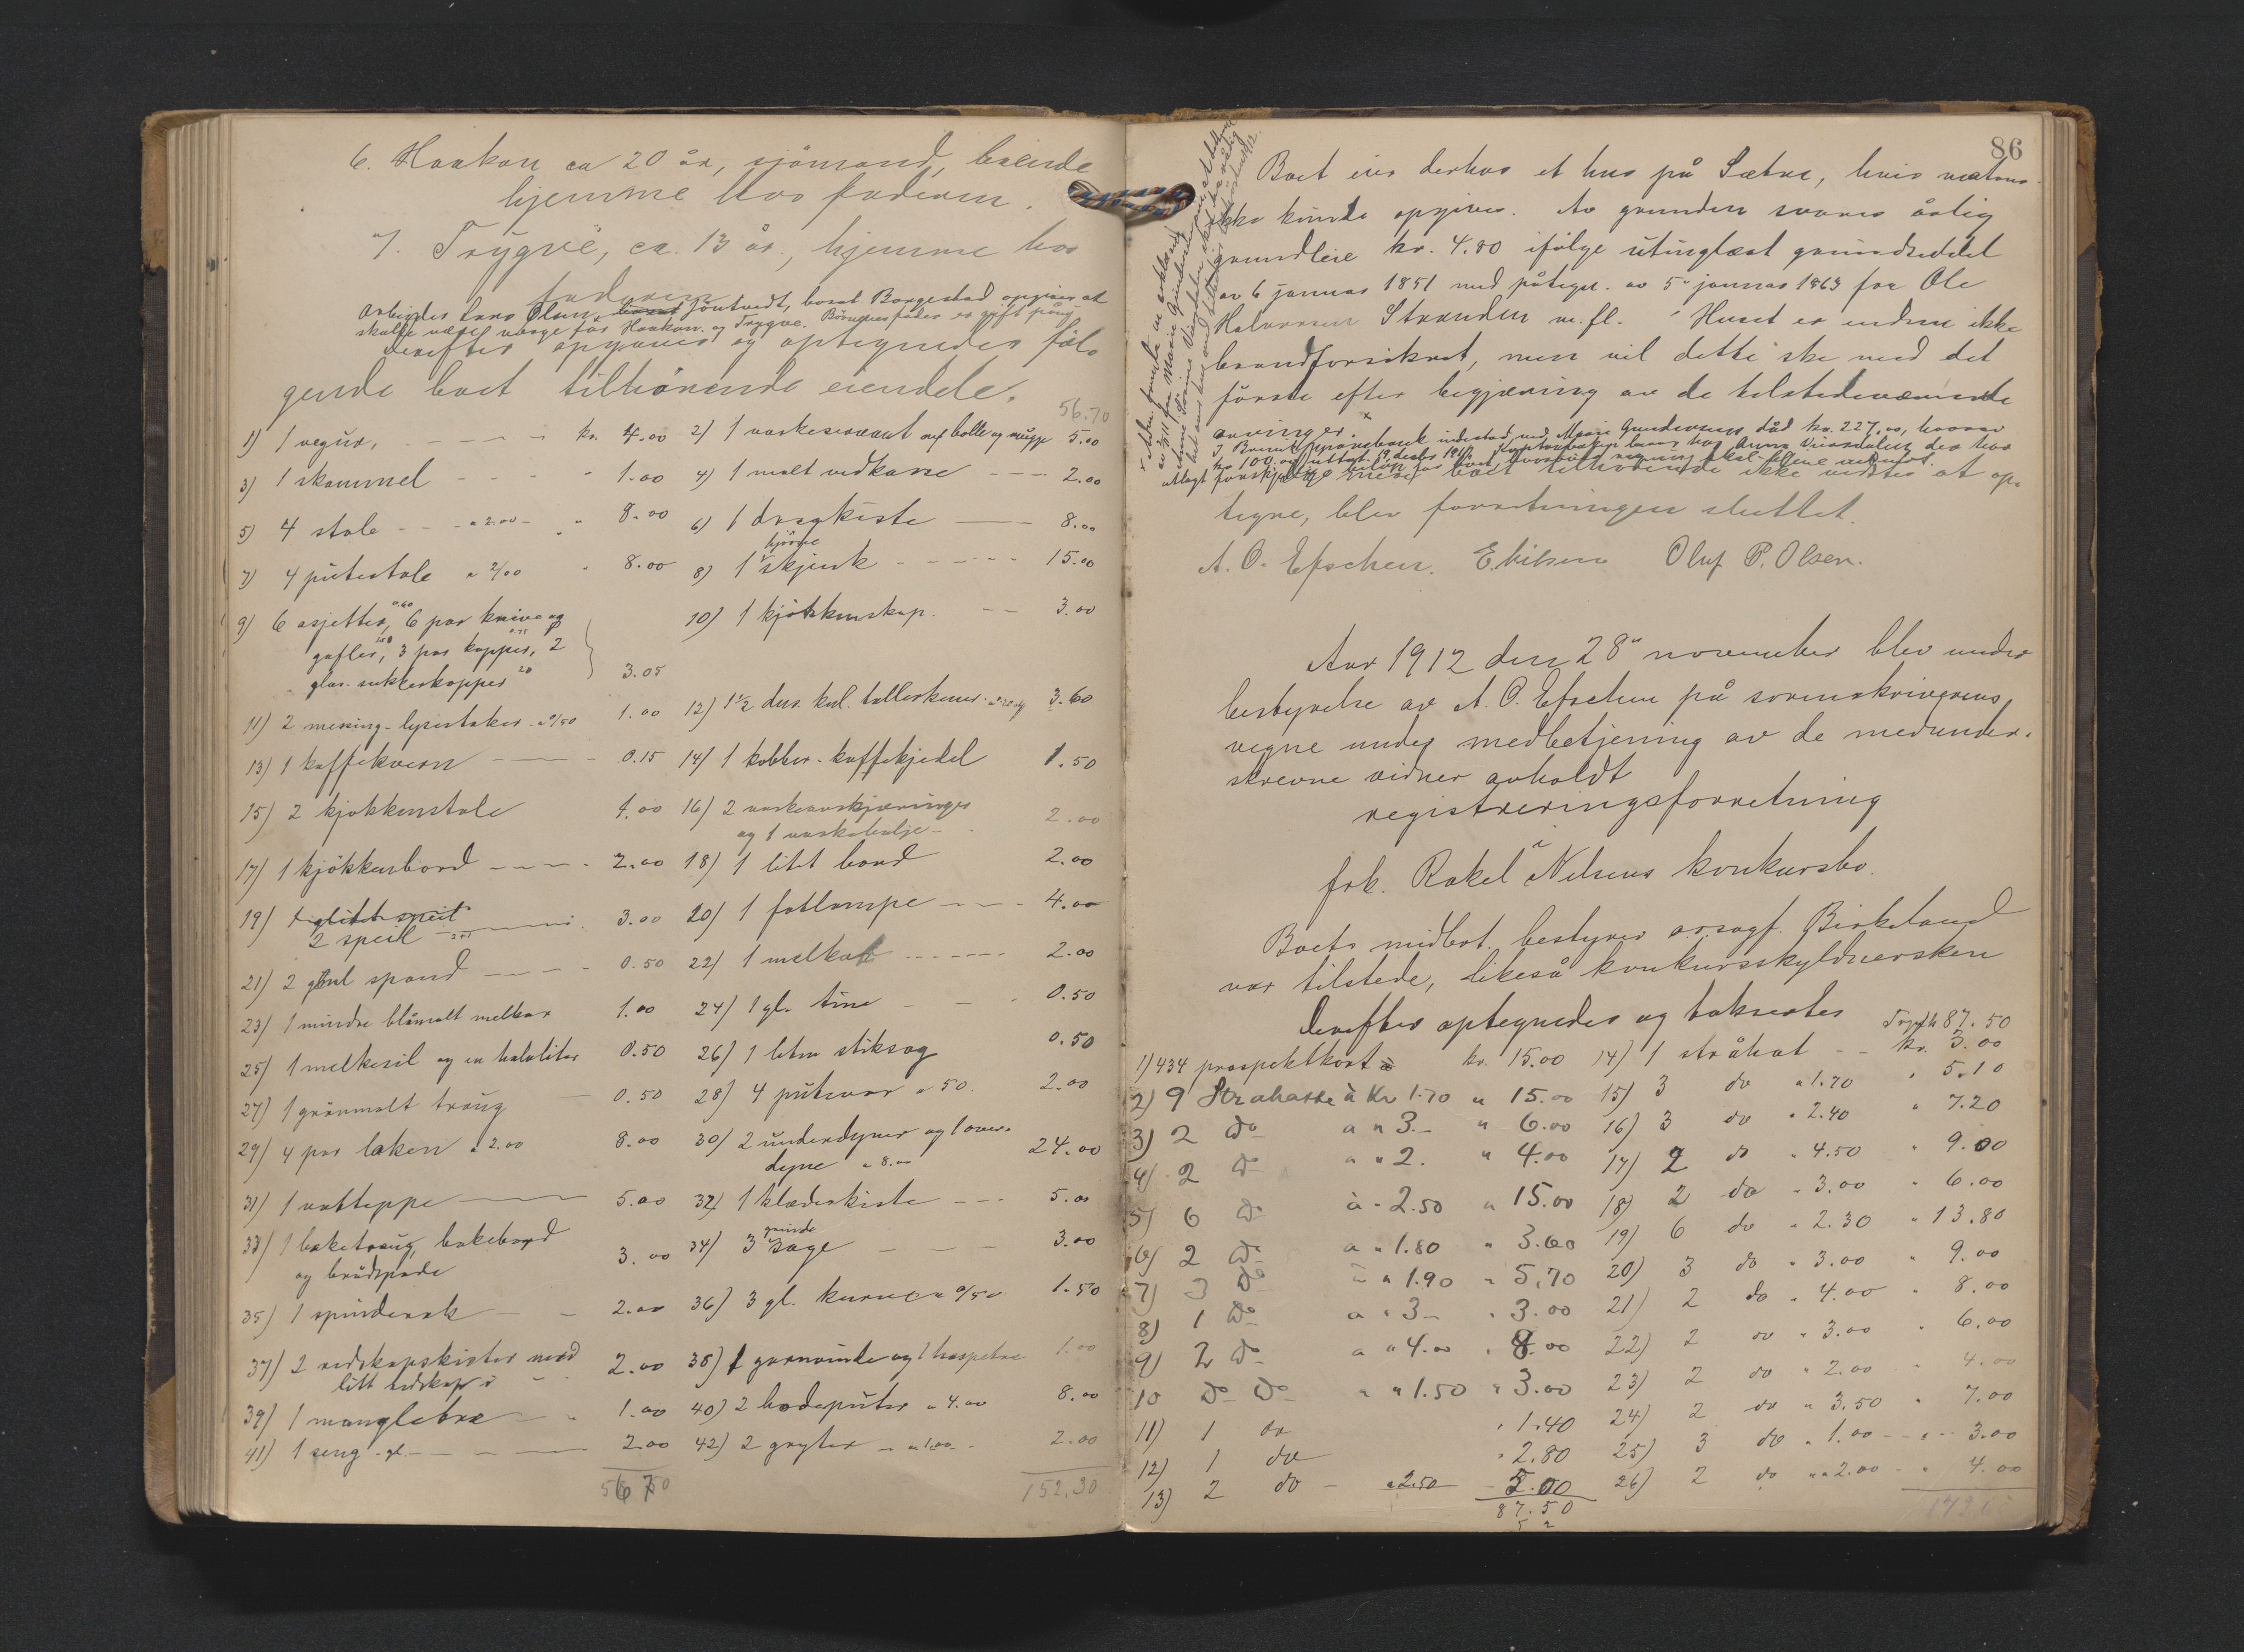 6. Haakon ca 20 år, sjömand, boende
hjemme hos faderen.
7. Trygve, ca. 13 år, hjemme hos
faderen
Arbeider Lars Olsen, Jöntvedt, bosat Borgestad opgives at
skulle være værge for Haakon og Trygve. Börnenes fader er gift påny
Derefter opgaves og optegnedes föl-
gende boet tilhörende eiendele.
56.70
1) 1 vegur, kr. 4.00 2) 1 vaskeservant med bolle og mugge 5.00
3) 1 skammel " 1.00 4) 1 malt vedkasse 2.00
5) 4 stole a 2.00 " 8.00 6) 1 dragkiste 8.00
7) 4 pütestole a 2/00 " 8.00 8) 1 hjörne skjenk 15.00
9) 6 asjetter, 0.60 6 par knive og
gafler, 3 par kopper, 2
glas. sukkerkopper 20 3.05
10) 1 kjökkenskap. 3.00
11) 2 messing-lysestaker a 0/50 1.00 12) 1 1/2 dus. kul. tallerkener 3.60
13) 1 kaffekvern 0.15 14) 1 kobber-kaffekjedel 1.50
15) 2 kjøkkenstole 1.00 16) 2
og 1 vaskebalje 2.00
17) 1 kjökkenbord 2.00 18) 1 litet bord 2.00
19) 1 litet speil
2 speil 3.00 20) 1 fotlampe 4.00
21) 2 gml spand 0.50 22) 1 melkekolle 2.00
23) 1 mindre blåmalt melkar 1.00 24) 1 gl. tine 0.50
25) 1 melkesil og en halvliter 0.50 26) 1 liten stiksag 0.50
27) 1 grönmalt traug 0.50 28) 4 pütevar a 50. 2.00
29) 4 par laken a 2.00 8.00 30) 2 underdyner og 1 over-
dyne a 8.00 24.00
31) 1 vatteppe 5.00 32) 1 klædeskiste 5.00
33) 1 baketraug, bakebord
og brödspade 3.00 34) 3 grinde sage 3.00
35) 1 spinderok 2.00 36) 3 gl. kurve a 0/50 1.50
37) 2 redskapskister med
litt redskap i 2.00 38) 1 garnvinde og 1 haspetræ 1.00
39) 1 mangletræ 1.00 40) 2 hodepüter a 4.00 8.00
41) 1 seng gl. 2.00 42) 2 gryter a 1.00 2.00
56.70 152.30
86
Boet eier derhos et hus på Sætre, hvis matrnr.
ikke kunde opgives. Av grunden svares årlig
grundleie kr. 4.80 ifölge utinglæst grundseddel
av 6 januar 1851 med påtegn. av 5 januar 1863 fra Ole
Halvorsen Stranden m. fl. Huset er endnu ikke
brandforsikret, men vil dette ske med det
förste efter begjæring av de tilstedeværende
arvinger. x
I Brevik Sparebank indestod ved Marie Gundersens död kr. 227.00, hvorav
kr 100 er uttat
utlagt forskjellige beløp for boet, hvorover regning skal
mere boet tilhörende ikke vistes at op-
tegne, blev forretningen sluttet.
A. O. Efschen. E. Nilsen Oluf P. Olsen.
Aar 1912 den 28 november blev under
bestyrelse av A. O. Efschen på sorenskriverens
vegne under medbetjening av de medunder-
skrevne vidner avholdt
registreringsforretning
i
frk. Rakel Nilsens konkursbo.
Boets midlert. bestyrer o.r.sagf. Birkeland
var tilstede, likeså konkursskyldnersken
Derefter optegnedes og takseretes
Trpft 87.50
1) 434 prospektkort kr. 15.00 14) 1 stråhat kr. 3.00
2) 9 Strahatte à Kr 1.70 " 15.00 15) 3 do a 1.70 " 5.10
3) 2 do a " 3.- " 6.00 16) 3 do " 2.40 " 7.20
4) 2 do " " 2. " 4.00 17) 2 do " 4.50 " 9.00
5) 6 do à " 2.50 " 15.00 18) 2 do " 3.00 " 6.00
6) 2 do a " 1.80 " 3.60 19) 6 do " 2.30 " 13.80
7) 3 do à " 1.90 " 5.70 20) 3 do " 3.00 " 9.00
8) 1 do a " 3- " 3.00 21) 2 do " 4.00 " 8.00
9) 2 do a " 4.00 " 8.00 22) 2 do " 3.00 " 6.00
10 do do " " 1.50 " 3.00 23) 2 do " 2.00 " 4.00
11) 1 do " 1.40 24) 2 do " 3.50 " 7.00
12) 1 do " 2.80 25) 3 do " 1.00 " 3.00
13) 2 do " 2.50 5.00 26) 2 do " 2.00 " 4.00
87.50